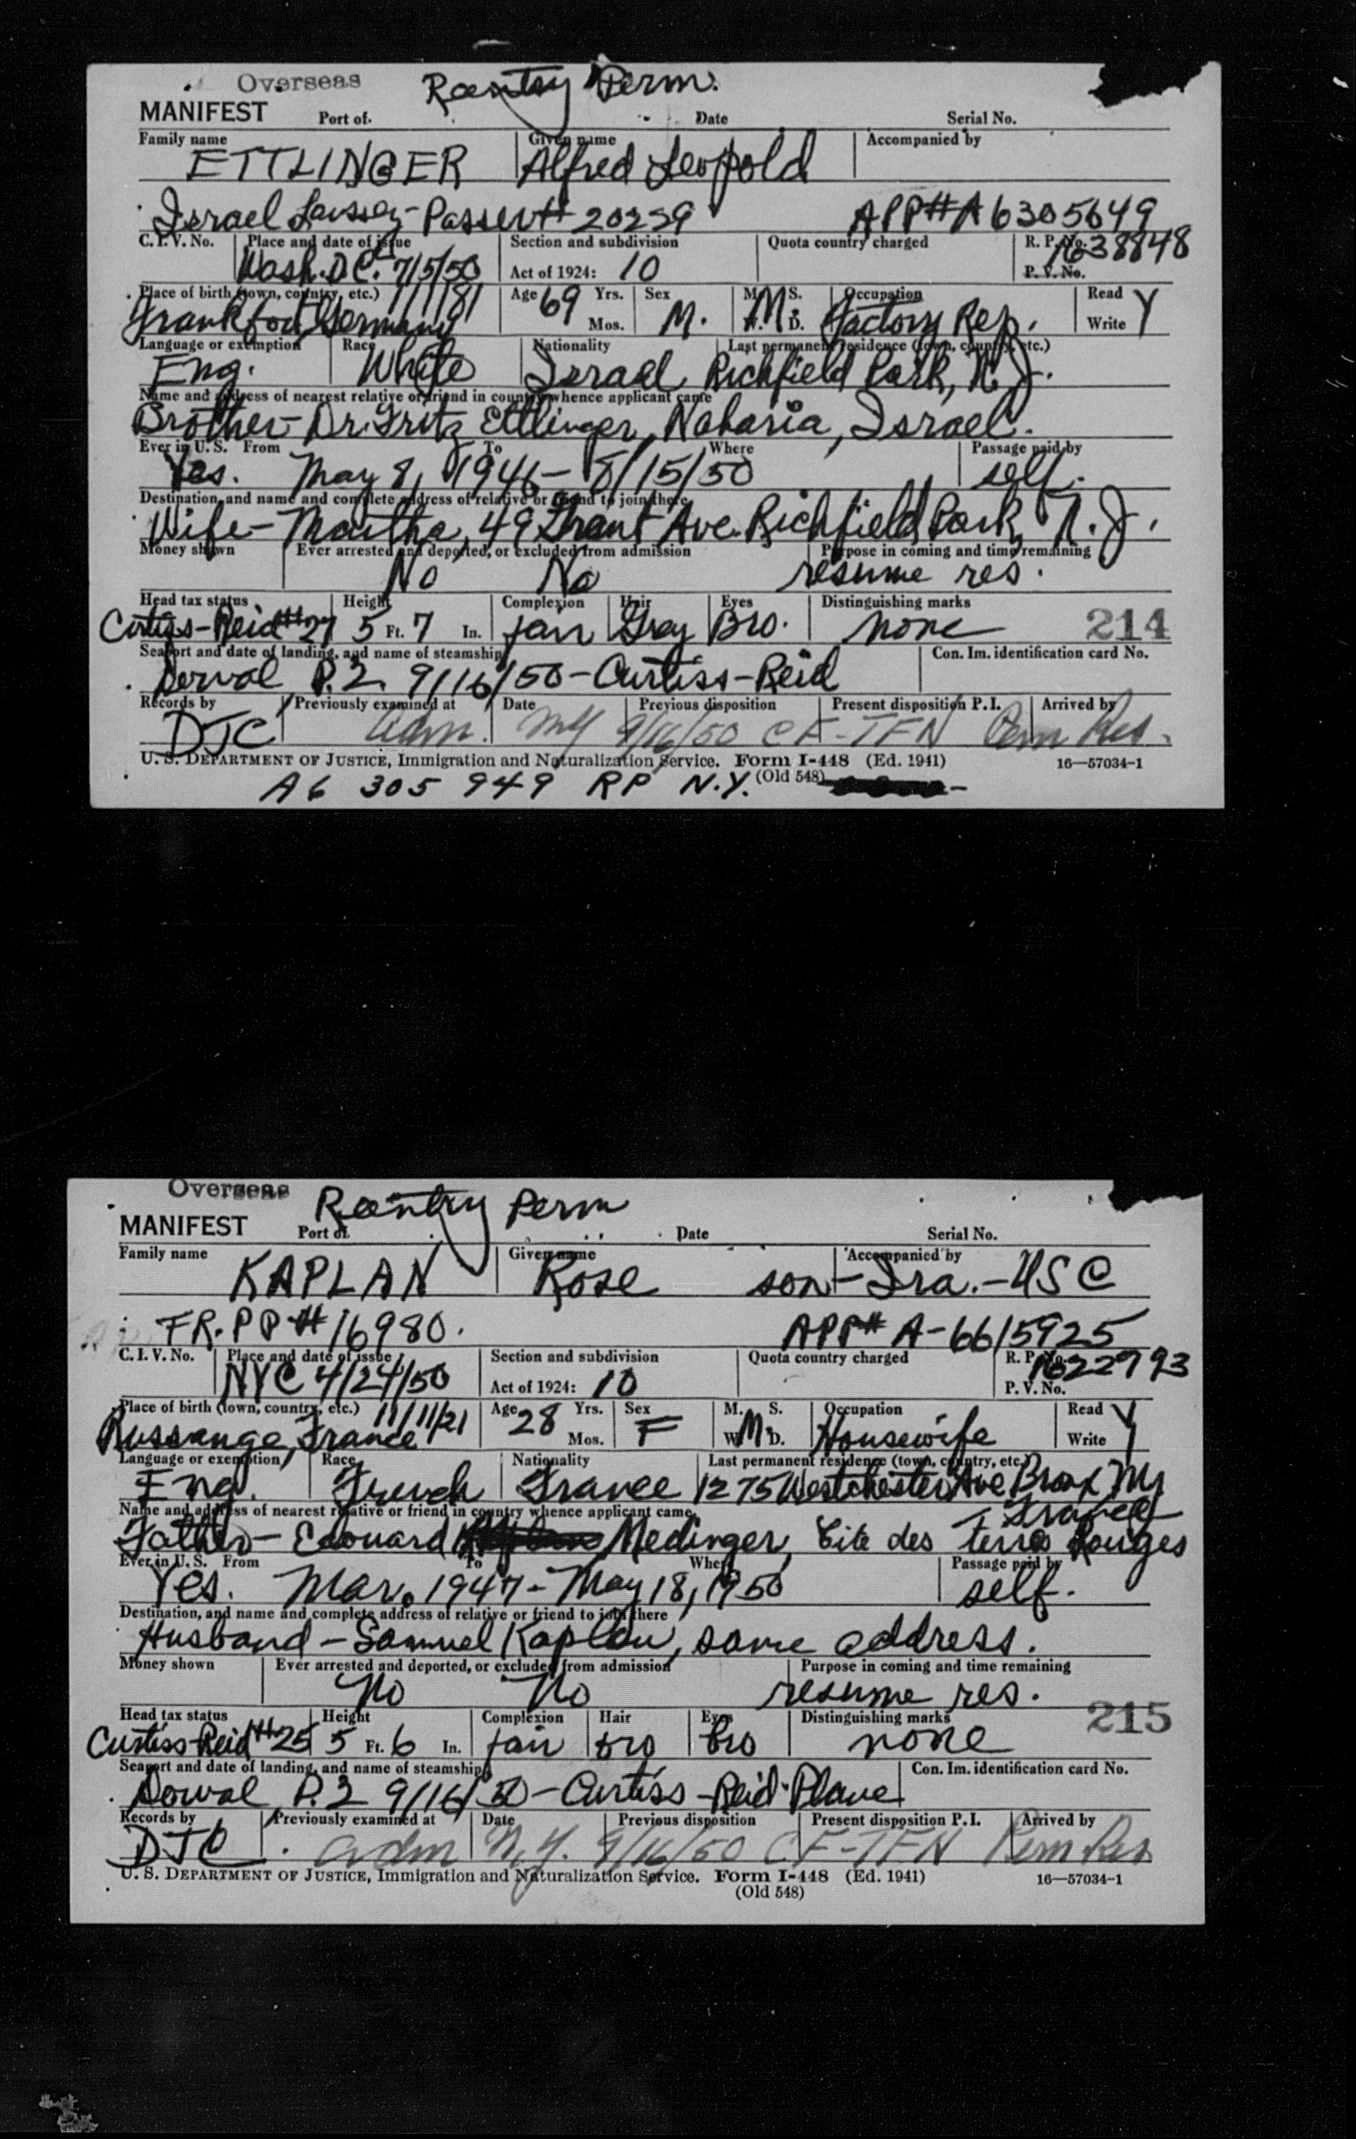 Overseas Reentry Perm.
MANIFEST Port of Date Serial No.
Family name Given name Accompanied by
ETTLINGER Alfred Leopold
Israel Passer# 20229 APP# A6305649
C. I. V. No. Place and date of issue Section and subdivision Quota country charged R. P. No. 1638848
Wash. D.C. 7/5/50 Act of 1924: 10 P. V. No.
Place of birth (town, country, etc.) 1/1/81 Age 69 Yrs. Sex M. S. Occupation Read Y
Frankfort, Germany Mos. M. W. M. D. Factory Rep. Write
Language or exemption Race Nationality Last permanent residence (town, country, etc.)
Eng. White Israel Richfield Park, N.J.
Name and address of nearest relative or friend in country whence applicant came
Brother - Dr. Fritz Ettlinger, Naharia, Israel.
Ever in U. S. From To Where Passage paid by
Yes. May 8, 1946 - 8/15/50 self.
Destination, and name and complete address of relative or friend to join there
Wife - Martha, 49 Grant Ave. Richfield Park, N.J.
Money shown Ever arrested and deported, or excluded from admission Purpose in coming and time remaining
No No resume res.
Head tax status Height Complexion Hair Eyes Distinguishing marks 214
Curtiss-Reid #27 5 Ft. 7 In. fair Gray Bro. none
Seaport and date of landing, and name of steamship Con. Im. identification card No.
Dorval P.2. 9/16/50 - Curtiss-Reid
Records by Previously examined at Date Previous disposition Present disposition P. I. Arrived by
DJC adm. NY 9/16/50 CF-TFN Perm Res.
U. S. DEPARTMENT OF JUSTICE, Immigration and Naturalization Service. Form I-448 (Ed. 1941) 16—57034-1
(Old 548)
A6 305 949 RP N.Y.
Overseas Reentry Perm
MANIFEST Port of Date Serial No.
Family name Given name Accompanied by
KAPLAN Rose son - Ira. - USC
FR. PP # 16980. APP# A-6615925
C. I. V. No. Place and date of issue Section and subdivision Quota country charged R. P. No. 1622793
NYC 4/24/50 Act of 1924: 10 P. V. No.
Place of birth (town, country, etc.) 11/11/21 Age 28 Yrs. Sex M. S. Occupation Read Y
Russange, France Mos. F W. M. D. Housewife Write
Language or exemption Race Nationality Last permanent residence (town, country, etc.)
Eng. French France 1275 Westchester Ave Bronx NY
Name and address of nearest relative or friend in country whence applicant came France
Father - Edouard Medinger, Cite des terres Rouges
Ever in U. S. From To Where Passage paid by
Yes. Mar. 1947 - May 18, 1950 self.
Destination, and name and complete address of relative or friend to join there
Husband - Samuel Kaplan, same address.
Money shown Ever arrested and deported, or excluded from admission Purpose in coming and time remaining
No No resume res.
Head tax status Height Complexion Hair Eyes Distinguishing marks 215
Curtiss-Reid #25 5 Ft. 6 In. fair bro bro none
Seaport and date of landing, and name of steamship Con. Im. identification card No.
Dorval P.2 9/16/50 - Curtiss-Reid Plane
Records by Previously examined at Date Previous disposition Present disposition P. I. Arrived by
DJC adm N.Y. 9/16/50 CF-TFN Perm Res
U. S. DEPARTMENT OF JUSTICE, Immigration and Naturalization Service. Form I-448 (Ed. 1941) 16—57034-1
(Old 548)